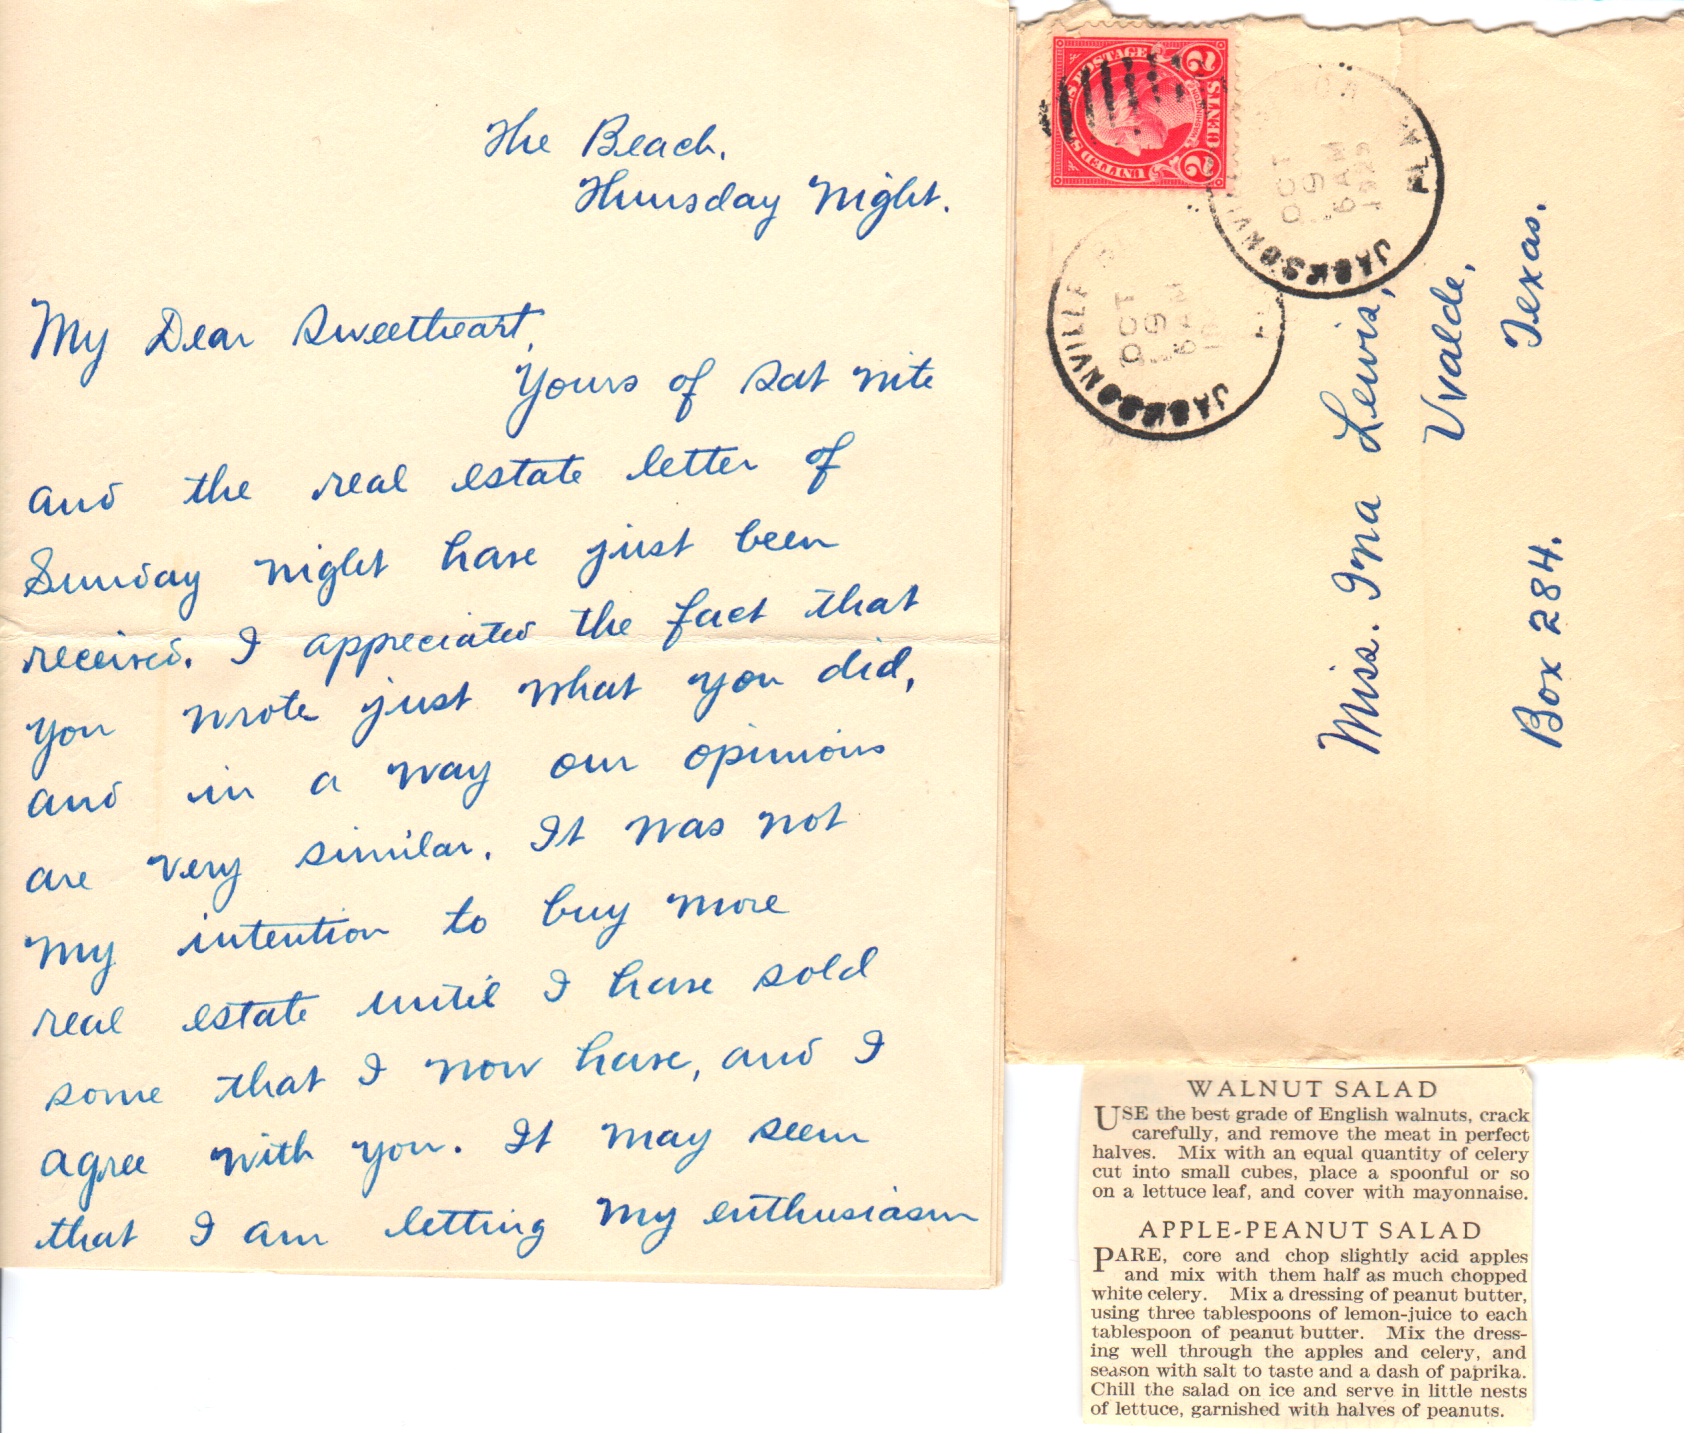 The Beach.
Thursday Night.
My Dear Sweetheart,
Yours of Sat nite
and the real estate letter of
Sunday night have just been
received. I appreciated the fact that
you wrote just what you did,
and in a way our opinions
are very similar. It was not
my intention to buy more
real estate until I have sold
some that I now have, and I
agree with you. It may seem
that I am letting my enthusiasm
UNITED STATES POSTAGE
2 CENTS 2
JACKSONVILLE
OCT
9
6 AM
JACKSONVILLE
FLA.
OCT
9
6 AM
1925
Miss. Ina Lewis,
Uvalde,
Box 284. Texas.
WALNUT SALAD
USE the best grade of English walnuts, crack
carefully, and remove the meat in perfect
halves. Mix with an equal quantity of celery
cut into small cubes, place a spoonful or so
on a lettuce leaf, and cover with mayonnaise.
APPLE-PEANUT SALAD
PARE, core and chop slightly acid apples
and mix with them half as much chopped
white celery. Mix a dressing of peanut butter,
using three tablespoons of lemon-juice to each
tablespoon of peanut butter. Mix the dress-
ing well through the apples and celery, and
season with salt to taste and a dash of paprika.
Chill the salad on ice and serve in little nests
of lettuce, garnished with halves of peanuts.